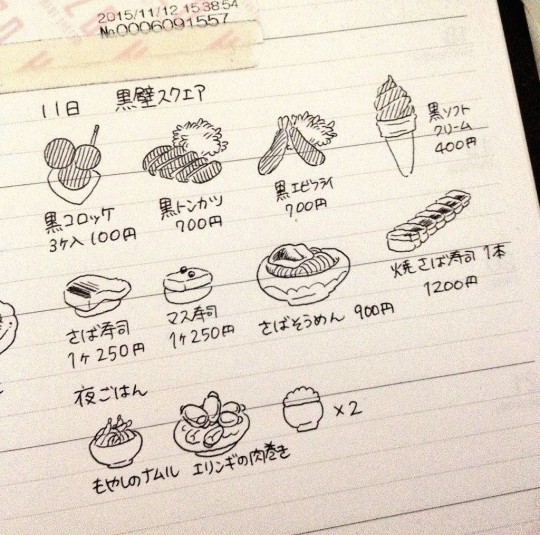 2015/11/12 15:38:54
No.0006091557
11日 黒壁スクエア
黒コロッケ
3ヶ入 100円
黒トンカツ
700円
黒エビフライ
700円
黒ソフト
クリーム
400円
さば寿司
1ヶ250円
マス寿司
1ヶ250円
さばそうめん 900円
焼さば寿司 1本
1200円
夜ごはん
もやしのナムル
エリンギの肉巻き
×2